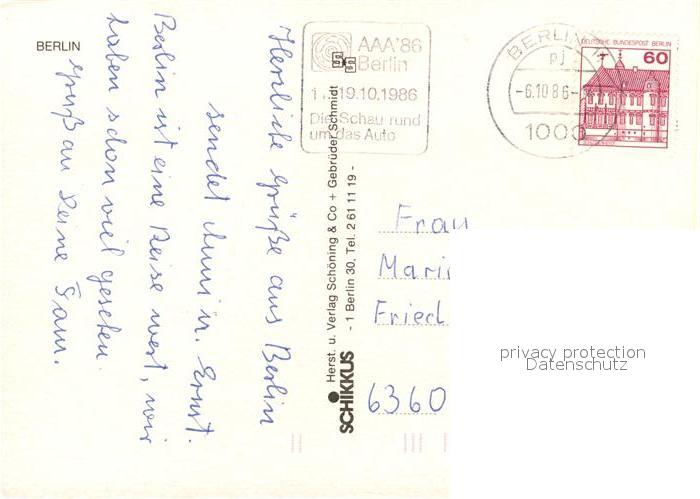 BERLIN
Herzliche Grüße aus Berlin
sendet Anni u. Ernst.
Berlin ist eine Reise wert, wir
haben schon viel gesehen.
Gruß an Deine Fam.
AAA'86
Berlin
11.-19.10.1986
Die Schau rund
um das Auto
BERLIN
pj
-6.10 86-
1000
DEUTSCHE BUNDESPOST BERLIN
60
SCHIKKUS
Herst. u. Verlag Schöning & Co + Gebrüder Schmidt
- 1 Berlin 30, Tel. 2 61 11 19 -
Frau
Mari
Fried
6360
privacy protection
Datenschutz